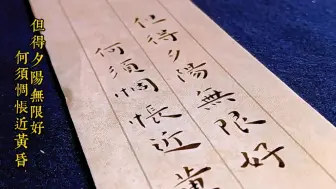 但得夕陽無限好
何須惆悵近黃
但得夕陽無限好
何須惆悵近黃昏